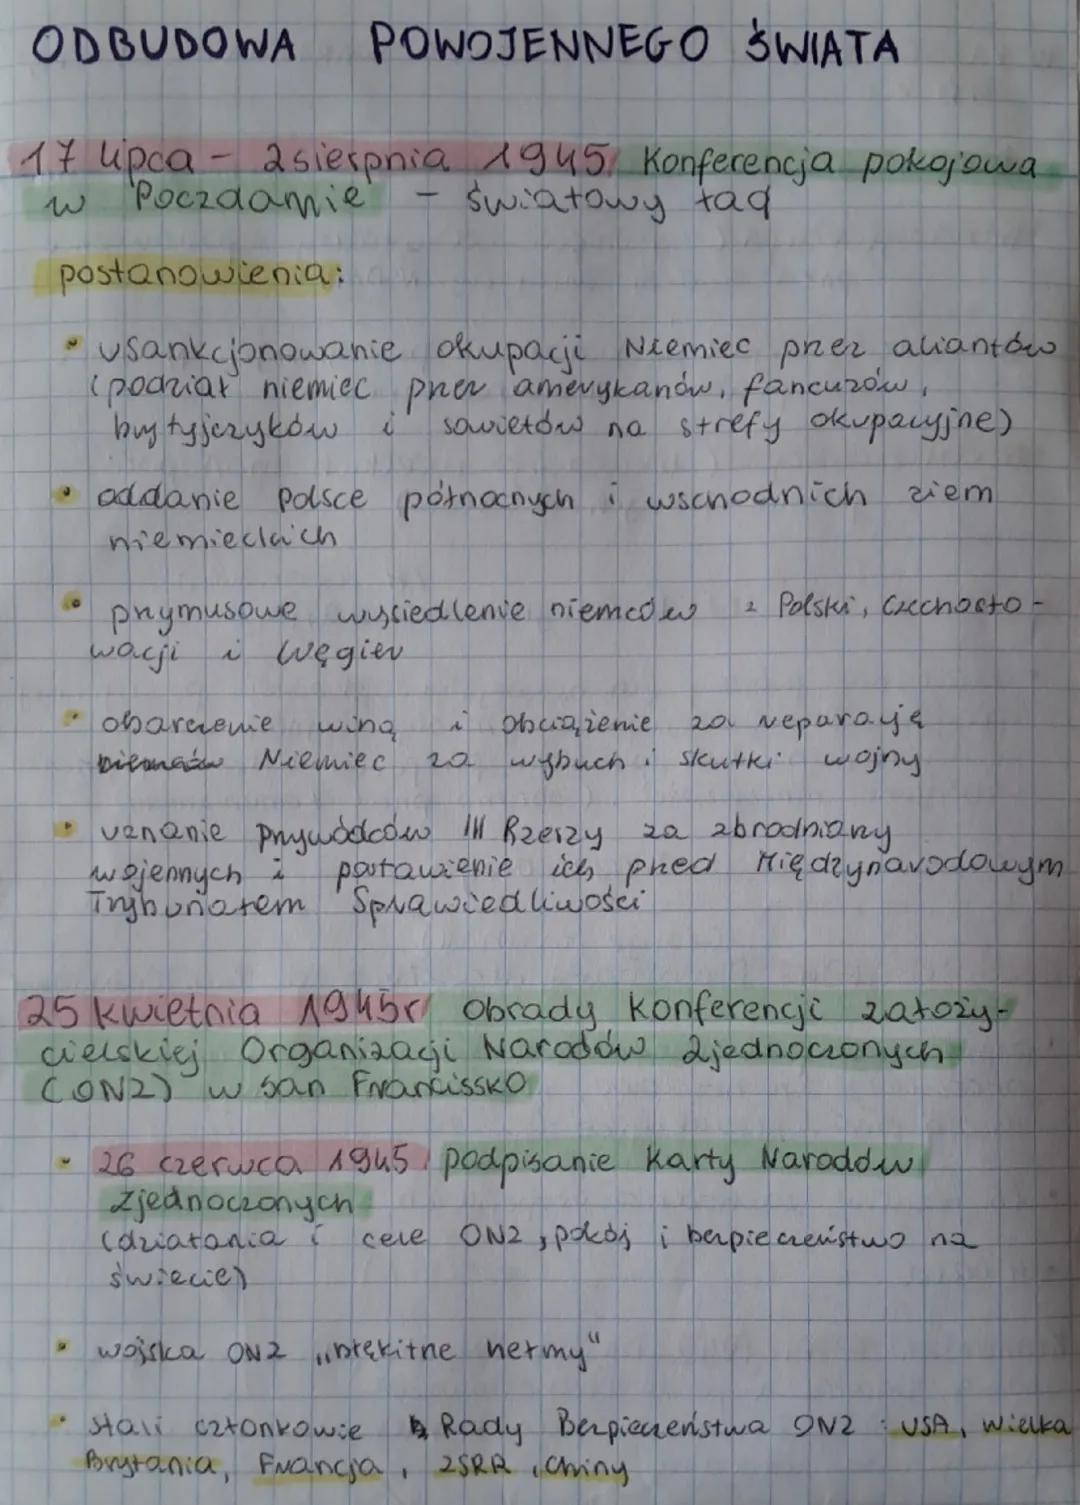 ODBUDOWA POWOJENNEGO ŚWIATA
17 lipca - 2 sierpnia 1945 Konferencja pokojowa
w Poczdamie - światowy ład
postanowienia:
• usankcjonowanie okupacji Niemiec przez aliantów
(podział niemiec przez amerykanów, fancuzów,
brytyjczyków i sowietów na strefy okupacyjne)
• oddanie polsce północnych i wschodnich ziem
niemieckich
• przymusowe wysiedlenie niemców z Polski, Czechosło-
wacji i Węgier
• obarczenie winą i obciążenie za reparację
Niemiec za wybuch i skutki wojny
• uznanie przywódców III Rzeszy za zbrodniarzy
wojennych i postawienie ich przed Międzynarodowym
Trybunałem Sprawiedliwości
25 kwietnia 1945r obrady konferencji założy-
cielskiej Organizacji Narodów Zjednoczonych
(ONZ) w San Francissko
• 26 czerwca 1945 podpisanie Karty Narodów
Zjednoczonych
(działania i cele ONZ, pokój i bezpieczeństwo na
świecie)
• wojska ONZ „błękitne hełmy"
• stali członkowie Rady Bezpieczeństwa ONZ: USA, Wielka
Brytania, Francja, ZSRR, Chiny